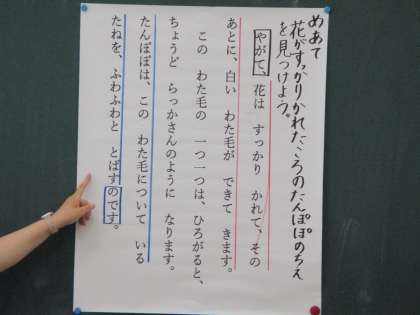 めあて
花がすっかりかれたころのたんぽぽのちえ
を見つけよう。
やがて、花は すっかり かれて、その
あとに、白い わた毛が できて きます。
この わた毛の 一つ一つは、ひろがると、
ちょうど らっかさんのように なります。
たんぽぽは、この わた毛について いる
たねを、ふわふわと とばすのです。